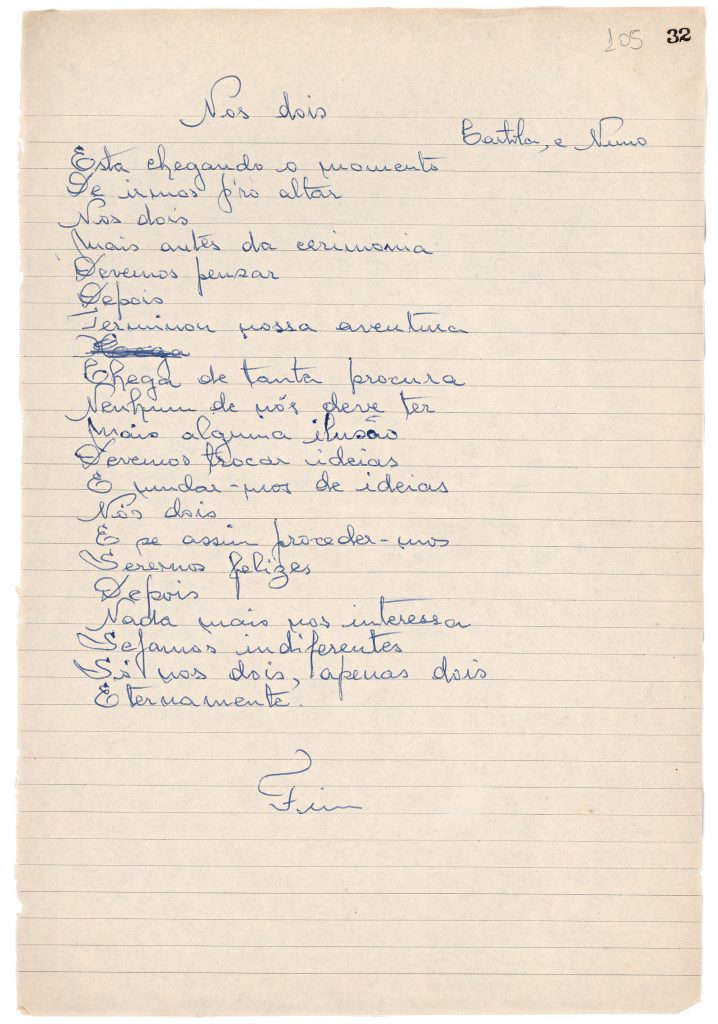 105 32
Nos dois
Cartola, e Nuno
Esta chegando o momento
De irmos p'ro altar
Nos dois
Mais antes da cerimonia
Devemos pensar
Depois
Terminou nossa aventura
Chega
Chega de tanta procura
Nenhum de nós deve ter
Mais alguma ilusão
Devemos trocar ideias
E mudar-mos de ideias
Nós dois
E se assim proceder-mos
Seremos felizes
Depois
Nada mais nos interessa
Sejamos indiferentes
Só nos dois, apenas dois
Eternamente.
Fim